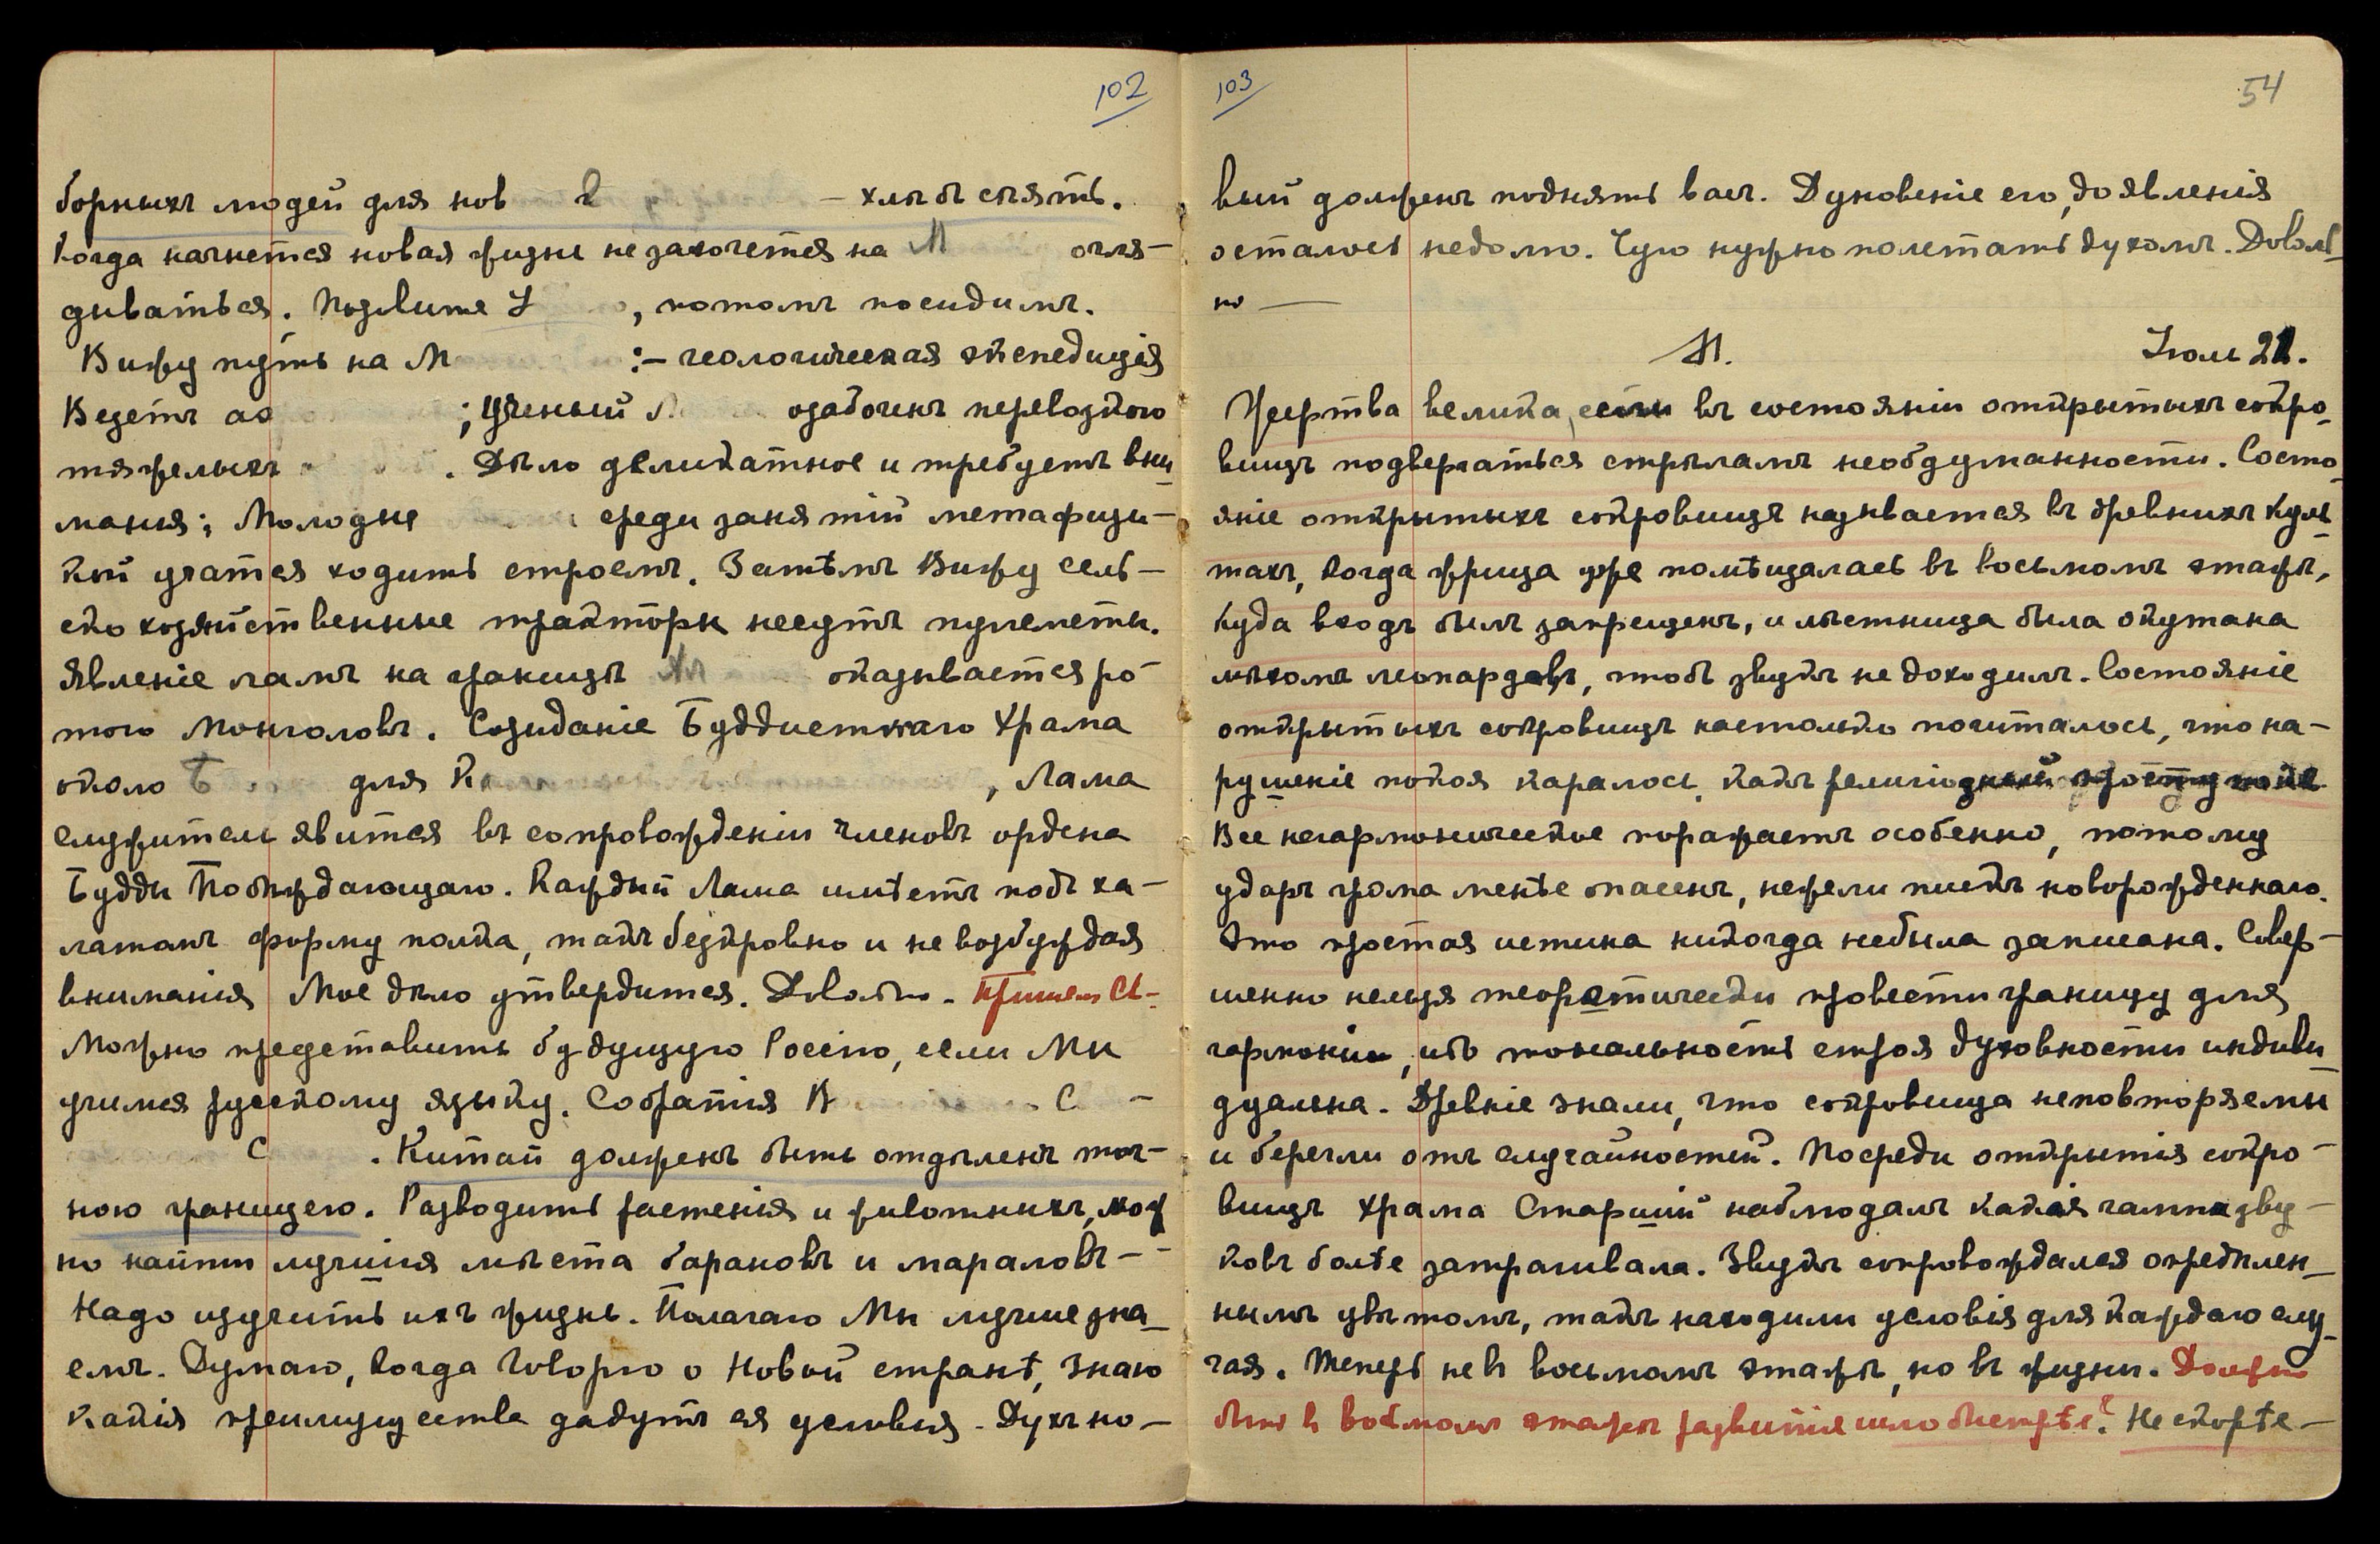 102
борныхъ людей для нов – хлѣбъ сѣять.
Когда начнется новая жизнь не захочется на М огля-
дываться. Позвите У , потомъ посидимъ.
Вижу путь на М :– геологическая экспедиція
Везетъ ао ; Ученый Л озабоченъ перевозкою
тяжелыхъ . Дѣло деликатное и требуетъ вни-
манія; Молодые среди занятій метафизи-
кой учатся ходить строемъ. Затѣмъ Вижу сель-
ско хозяйственные тракторы несутъ пулеметы.
Явленіе ламъ на границѣ оказывается ро-
тою Монголовъ. Созиданіе Буддистскаго Храма
около Б для К , Лама
служитель явится въ сопровожденіи членовъ ордена
Будды Побѣждающаго. Каждый Лама имѣетъ подъ ха-
латомъ форму полка, такъ безкровно и не возбуждая
вниманія Мое дѣло утвердится. Довольно.
Можно представить будущую Россію, если Мы
учимся русскому языку. Собратія К С –
С . Китай долженъ быть отдѣленъ точ-
ною границею. Разводить растенія и животныхъ, мож
но найти лучшія мѣста барановъ и мараловъ –
Надо изучить ихъ жизнь. Полагаю Мы лучше зна-
емъ. Думаю, Когда Говорю о Новой странѣ, знаю
какія преимущества дадутъ ея условія. Духъ но-
103
54
вый долженъ поднять васъ. Дуновеніе его, до явленія
осталось недолго. Чую нужно полетать духомъ. Доволь-
но —
М. Іюль 21.
Жертва велика, если въ состояніи открытыхъ сокро-
вищъ подвергаться стрѣламъ необдуманности. Состо-
яніе открытыхъ сокровищъ называется въ древнихъ куль-
тахъ, когда жрица уже помѣщалась въ восьмомъ этажѣ,
куда входъ былъ запрещенъ, и лѣстница была окутана
мѣхомъ леопардовъ, чтобъ звукъ не доходилъ. Состояніе
открытыхъ сокровищъ настолько почиталось, что на-
рушеніе покоя каралось, какъ религіозный проступокъ
Все негармоническое поражаетъ особенно, потому
ударъ грома менѣе опасенъ, нежели пискъ новорожденнаго.
Это простая истина никогда небыла записана. Совер-
шенно нельзя теоретически провести границу для
гармоніи, ибо тональность строя духовности индиви-
дуальна. Древніе знали, что сокровища неповторяемы
и берегли отъ случайностей. Посреди открытія сокро-
вищъ храма Старшій наблюдалъ какая гамма зву-
ковъ болѣе затрагивала. Звукъ сопровождался опредѣлен-
нымъ цвѣтомъ, такъ находили условія для каждаго слу-
чая. Теперь не въ восьмомъ этажѣ, но въ жизни. Должно
быть въ восьмомъ этажѣ развитіе шло быстрѣе? Не скорѣе –